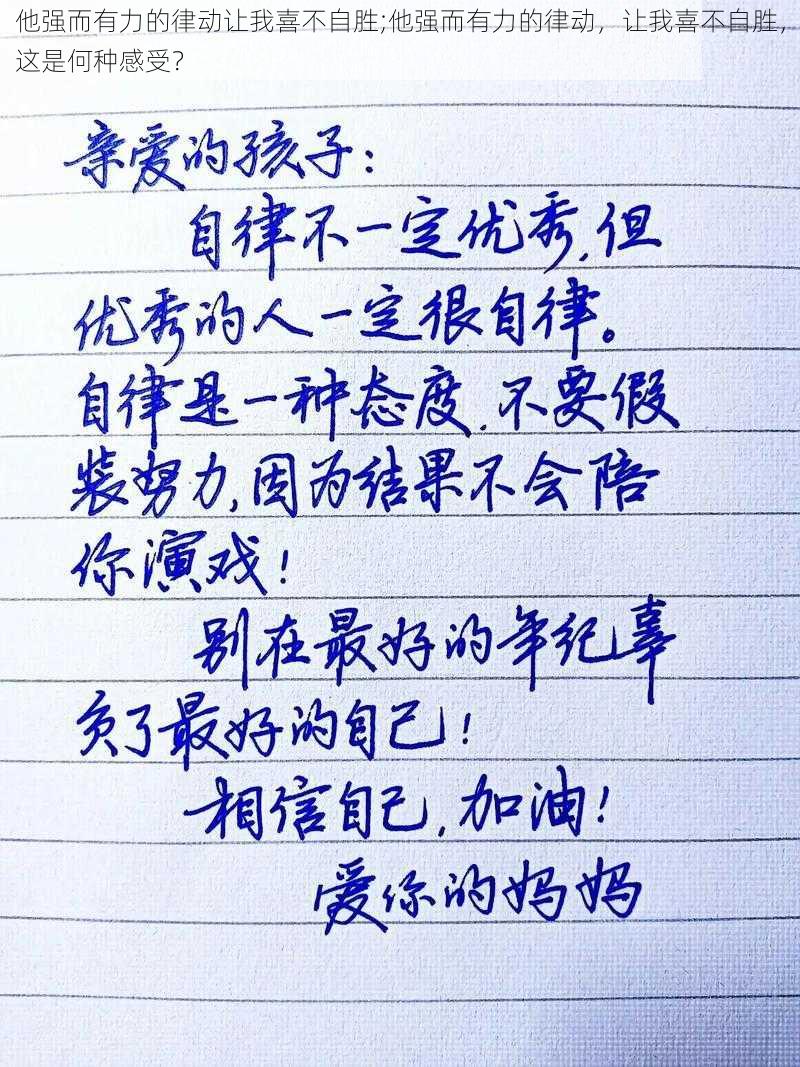 他强而有力的律动让我喜不自胜;他强而有力的律动，让我喜不自胜，
这是何种感受？
亲爱的孩子：
自律不一定优秀，但
优秀的人一定很自律。
自律是一种态度，不要假
装努力，因为结果不会陪
你演戏！
别在最好的年纪辜
负了最好的自己！
相信自己，加油！
爱你的妈妈